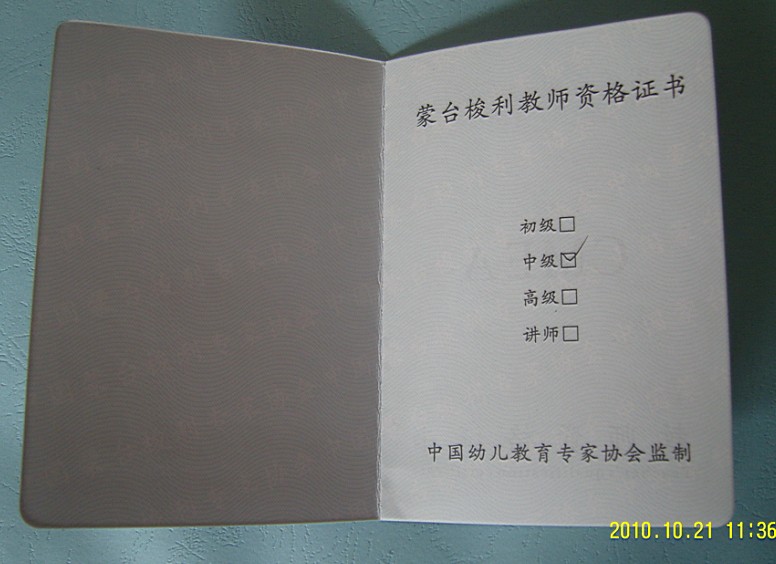 蒙台梭利教师资格证书
初级□
中级☑
高级□
讲师□
中国幼儿教育专家协会监制
2010.10.21 11:36